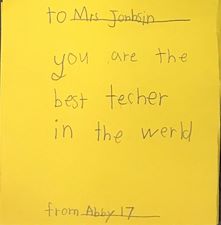 to Mrs Jonbsin
you are the
best techer
in the werld
from Abby 17